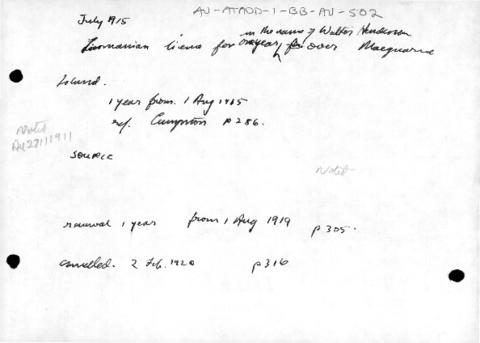 AU-ATADD-1-BB-AU-502
July 1915
in the name of Walter Henderson
Tasmanian licence for one year, for over Macquarie
Island.
1 year from 1 Aug 1915
ref. Cumpston p286.
Noted
AU27111911
SOURCE
Noted
renewal 1 year from 1 Aug 1919 p305.
cancelled. 2 Feb. 1920 p316